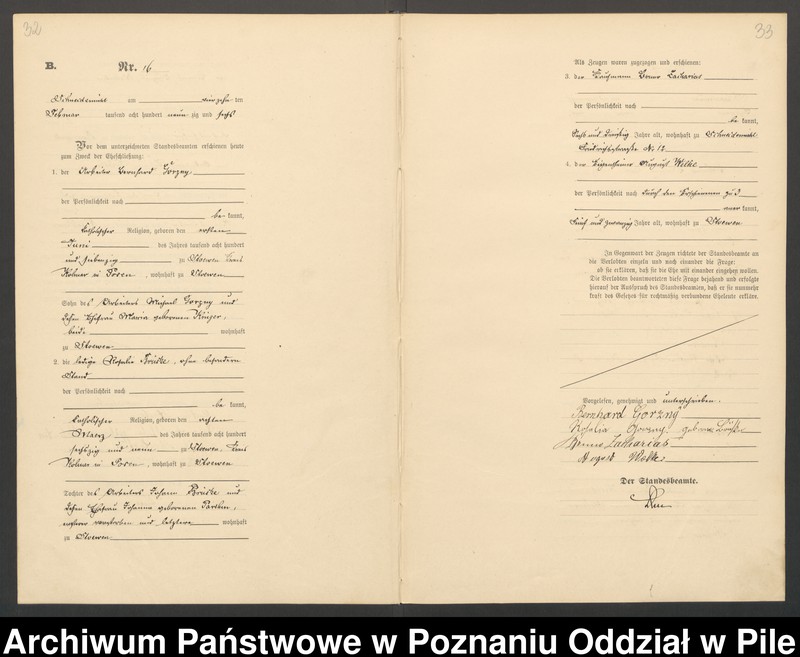 32
B. Nr. 16
Schneidemühl am vierzehnten
Februar tausend acht hundert neunzig und sechs
Vor dem unterzeichneten Standesbeamten erschienen heute
zum Zweck der Eheschließung:
1. der Arbeiter Bernhard Gorzny,
der Persönlichkeit nach
be kannt,
katholischer Religion, geboren den ersten
Juni des Jahres tausend acht hundert
und siebenzig zu Stoewen Kreis
Kolmar in Posen, wohnhaft zu Stoewen
Sohn des Arbeiters Michael Gorzny und
dessen Ehefrau Maria geborenen Krüger,
beide wohnhaft
zu Stoewen
2. die ledige Rosalie Brüske, ohne besonderen
Stand
der Persönlichkeit nach
be kannt,
katholischer Religion, geboren den achten
März des Jahres tausend acht hundert
sechszig und neun zu Stoewen Kreis
Kolmar in Posen, wohnhaft zu Stoewen
Tochter des Arbeiters Johann Brüske und
dessen Ehefrau Johanna geborenen
ersterer verstorben und letztere wohnhaft
zu Stoewen
33
Als Zeugen waren zugezogen und erschienen:
3. der Kaufmann Benno Zacharias
der Persönlichkeit nach
be kannt,
sechs und dreißig Jahre alt, wohnhaft zu Schneidemühl
Friedrichstraße No 12
4. der Eigenthümer August Wilke
der Persönlichkeit nach durch den Erschienenen zu 3
aner kannt,
fünf und zwanzig Jahre alt, wohnhaft zu Stoewen
In Gegenwart der Zeugen richtete der Standesbeamte an
die Verlobten einzeln und nach einander die Frage:
ob sie erklären, daß sie die Ehe mit einander eingehen wollen.
Die Verlobten beantworteten diese Frage bejahend und erfolgte
hierauf der Ausspruch des Standesbeamten, daß er sie nunmehr
kraft des Gesetzes für rechtmäßig verbundene Eheleute erkläre.
Vorgelesen, genehmigt und unterschrieben.
Bernhard Gorzny
Rosalia Gorzny geborne Brüske
Benno Zacharias
August Wilke
Der Standesbeamte.
Archiwum Państwowe w Poznaniu Oddział w Pile